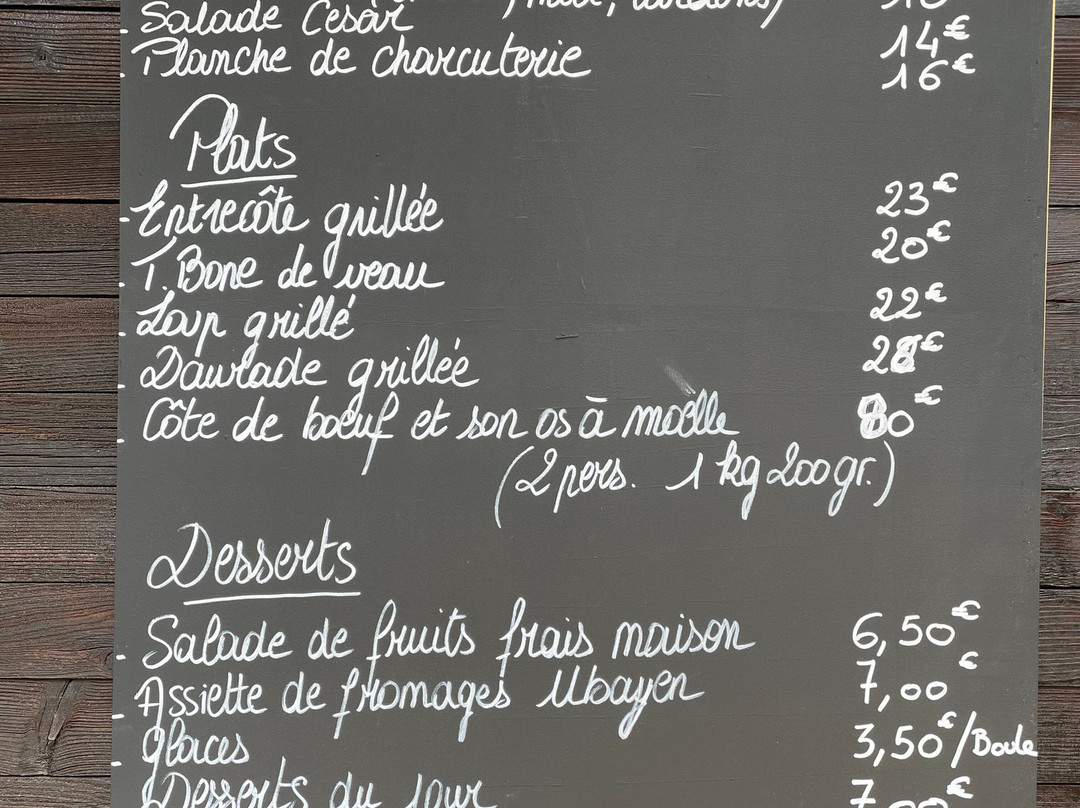 - Salade César 14€
- Planche de charcuterie 16€
Plats
- Entrecôte grillée 23€
- T. Bone de veau 20€
- Loup grillé 22€
- Dawrade grillée 28€
- Côte de boeuf et son os à moëlle 80€
(2 pers. 1 kg 200 gr.)
Desserts
- Salade de fruits frais maison 6,50€
- Assiette de fromages Ubayen 7,00€
- Glaces 3,50€/Boule
Desserts du jour 7,00€